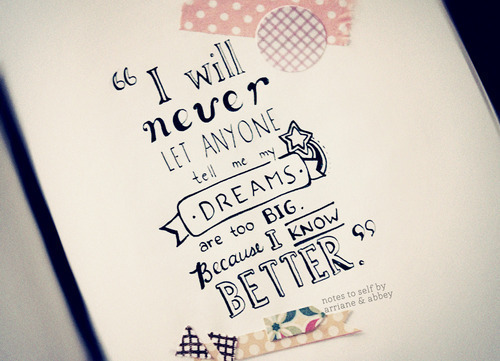 “I will
never
LET ANYONE
tell me my
DREAMS
are too BIG.
Because I KNOW
BETTER.”
notes to self by
arriane & abbey